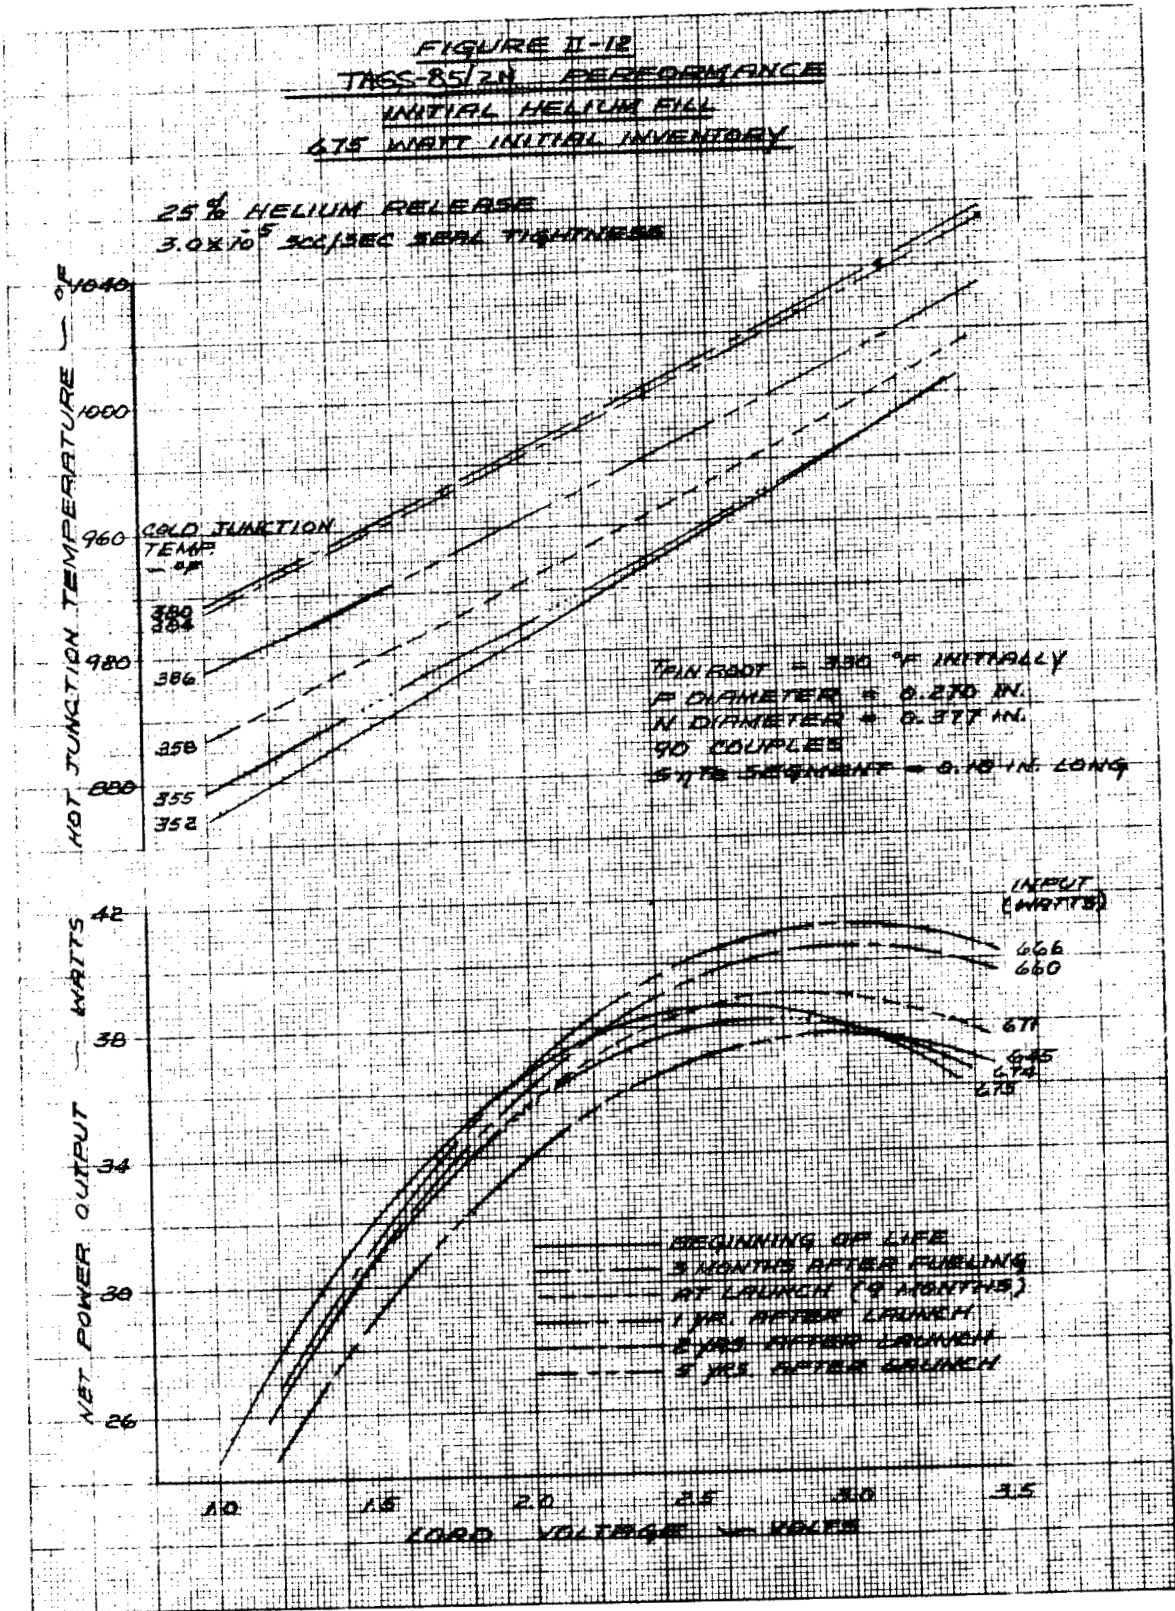 FIGURE II-12
TAGS-85/2N PERFORMANCE
INITIAL HELIUM FILL
675 WATT INITIAL INVENTORY
25% HELIUM RELEASE
3.0 X 10^-5 SCC/SEC SEAL TIGHTNESS
HOT JUNCTION TEMPERATURE ~ °F
1040
1000
960
980
880
COLD JUNCTION
TEMP.
~ °F
380
384
386
358
355
352
T FIN ROOT = 330 °F INITIALLY
P DIAMETER = 0.270 IN.
N DIAMETER = 0.377 IN.
90 COUPLES
SnTe SEGMENT = 0.10 IN. LONG
NET POWER OUTPUT ~ WATTS
42
38
34
30
26
INPUT
(WATTS)
666
660
671
645
674
675
BEGINNING OF LIFE
3 MONTHS AFTER FUELING
AT LAUNCH (9 MONTHS)
1 YR. AFTER LAUNCH
2 YRS AFTER LAUNCH
5 YRS AFTER LAUNCH
1.0 1.5 2.0 2.5 3.0 3.5
LOAD VOLTAGE ~ VOLTS